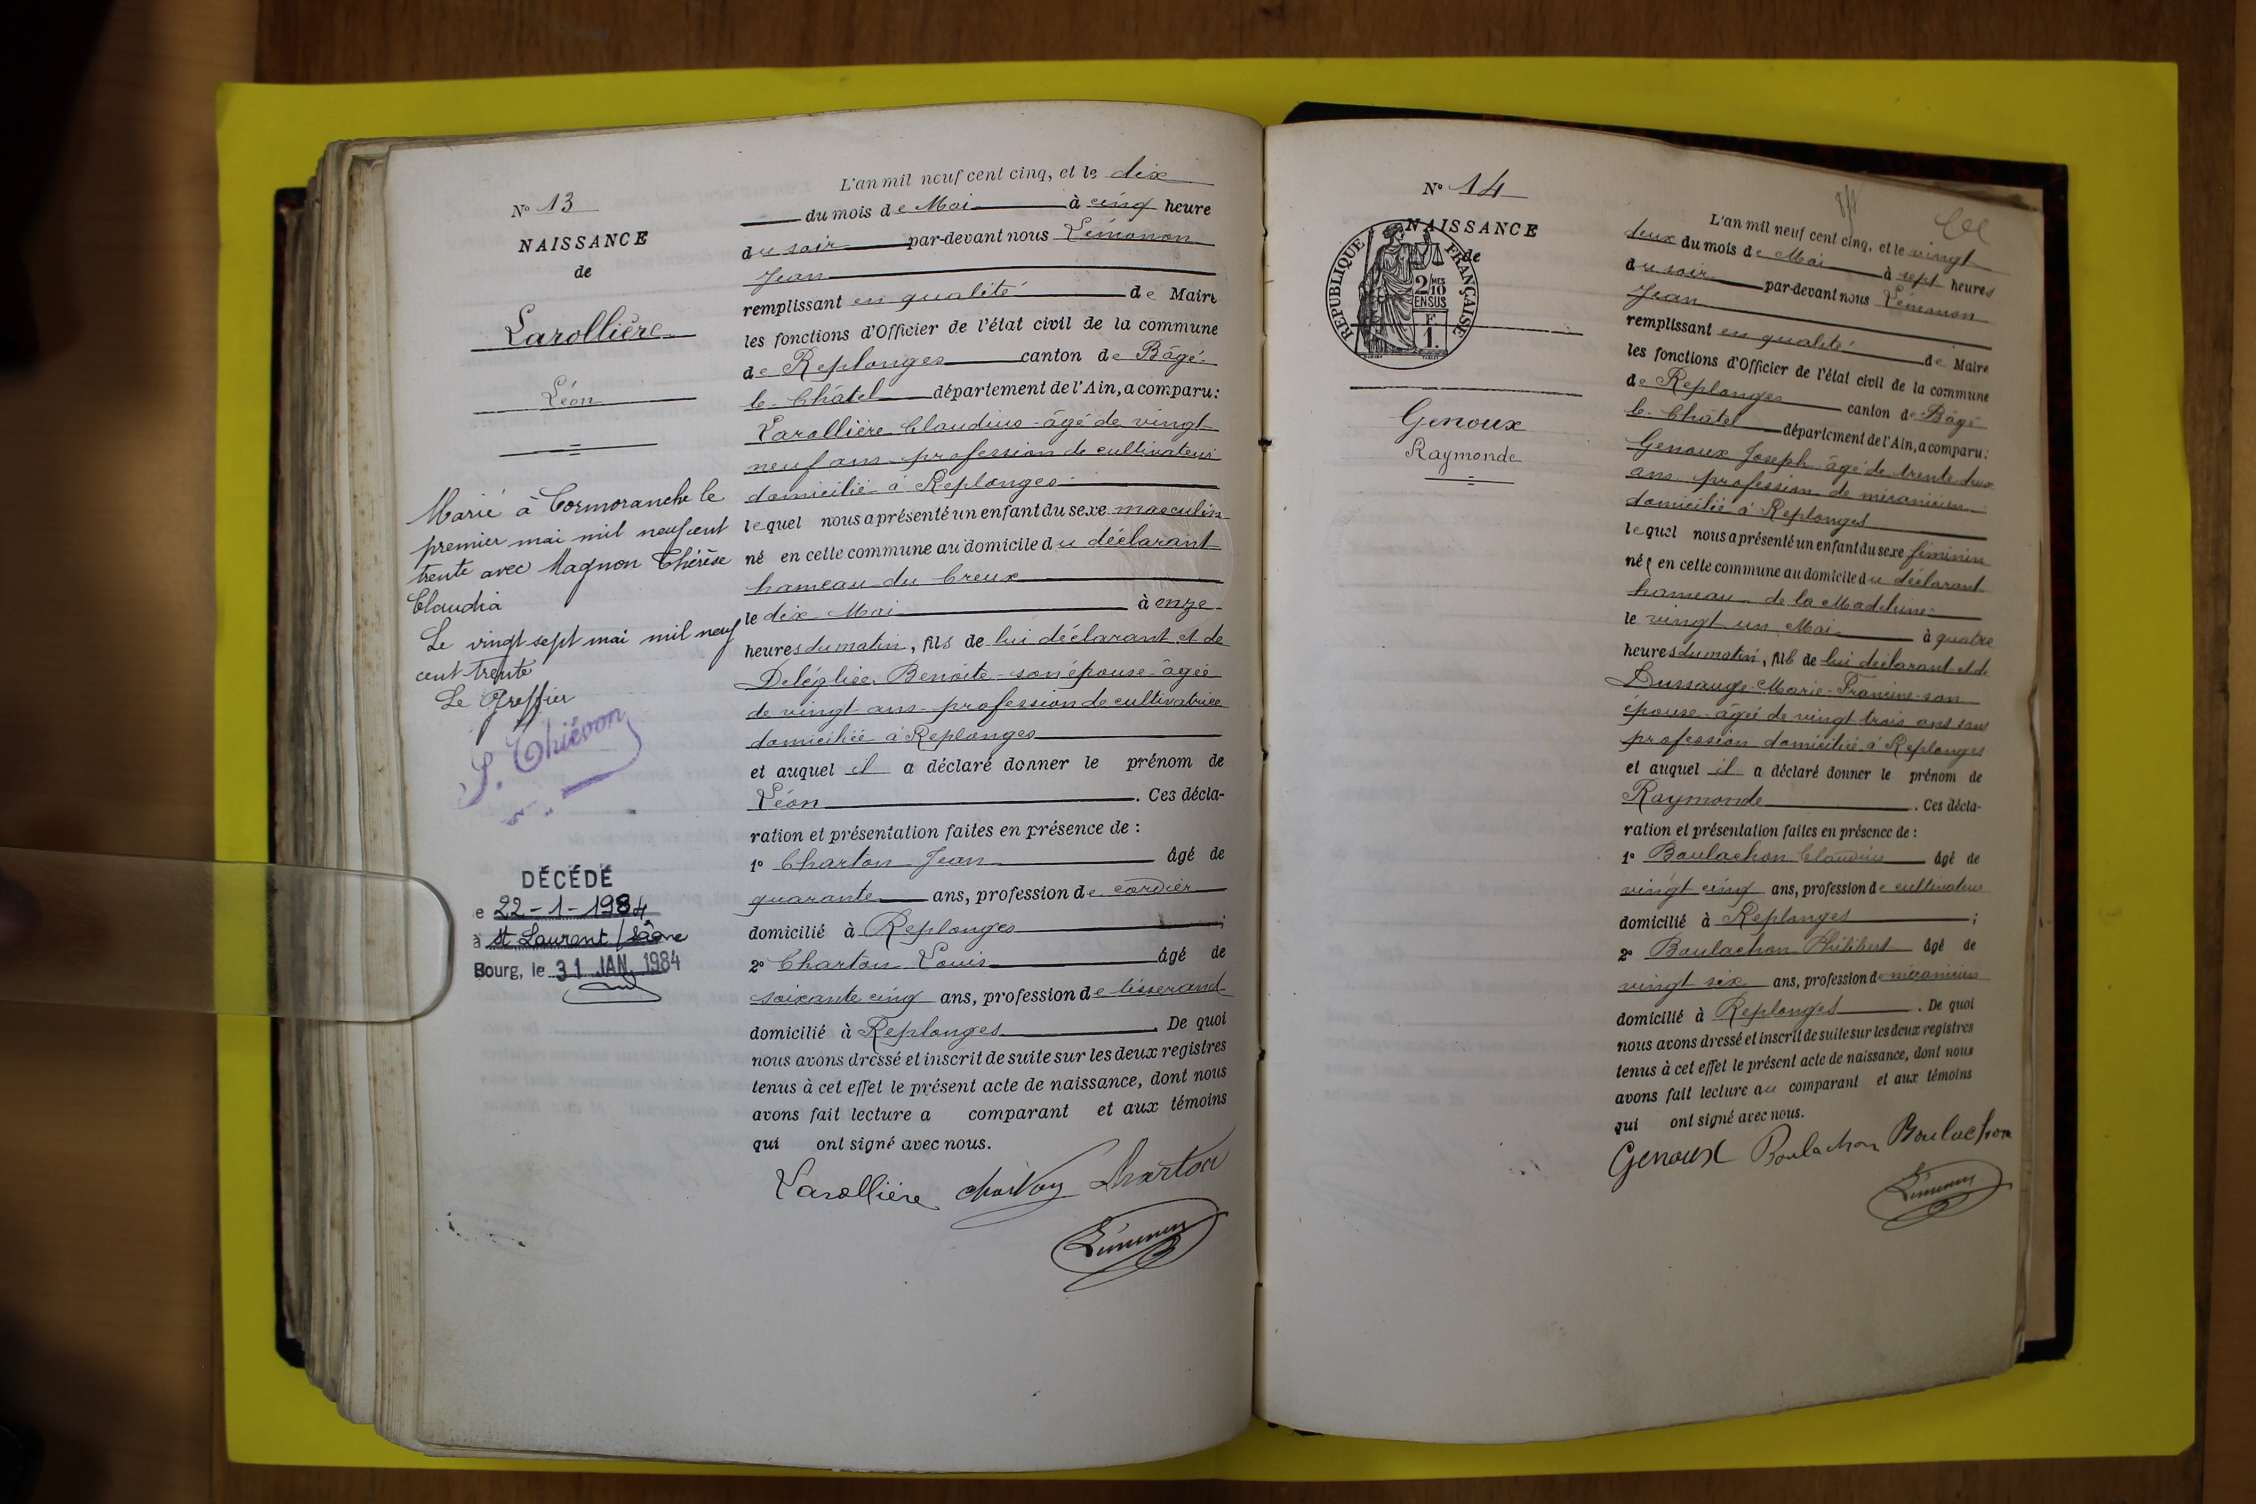 N° 13
NAISSANCE
de
Larollière
Léon
Marié à Cormoranche le
premier mai mil neuf cent
trente avec Magnon Thérèse
Claudia
Le vingt sept mai mil neuf
cent trente
Le Greffier
S. Thiévon
DÉCÉDÉ
e 22-1-1984
à St Laurent/Saône
Bourg, le 31 JAN. 1984
L'an mil neuf cent cinq, et le dix
du mois de Mai à cinq heure
du soir par-devant nous Lémonon
Jean
remplissant en qualité de Maire
les fonctions d'Officier de l'état civil de la commune
de Replonges canton de Bâgé-
le-Châtel département de l'Ain, a comparu:
Larollière Claudius âgé de vingt
neuf ans profession de cultivateur
domicilié à Replonges
lequel nous a présenté un enfant du sexe masculin
né en cette commune au domicile du déclarant
hameau du Creux
le dix Mai à onze
heures du matin, fils de lui déclarant et de
Deléglise Benoite son épouse âgée
de vingt ans profession de cultivatrice
domiciliée à Replonges
et auquel il a déclaré donner le prénom de
Léon . Ces décla-
ration et présentation faites en présence de :
1° Charton Jean âgé de
quarante ans, profession de cordier
domicilié à Replonges ;
2° Charton Louis âgé de
soixante cinq ans, profession de tisserand
domicilié à Replonges . De quoi
nous avons dressé et inscrit de suite sur les deux registres
tenus à cet effet le présent acte de naissance, dont nous
avons fait lecture a comparant et aux témoins
qui ont signé avec nous.
Larollière Charton Charton
Lémonon
N° 14
NAISSANCE
de
RÉPUBLIQUE FRANÇAISE
2/10 MES
EN SUS
F
1.
Genoux
Raymonde
L'an mil neuf cent cinq, et le vingt
deux du mois de Mai à sept heures
du soir par-devant nous Lémonon
Jean
remplissant en qualité de Maire
les fonctions d'Officier de l'état civil de la commune
de Replonges canton de Bâgé
le-Châtel département de l'Ain, a comparu:
Genoux Joseph âgé de trente deux
ans profession de mécanicien
domicilié à Replonges
lequel nous a présenté un enfant du sexe féminin
née en cette commune au domicile du déclarant
hameau de la Madeleine
le vingt un Mai à quatre
heures du matin, fils de lui déclarant et de
Dussauge Marie-Francine son
épouse âgée de vingt trois ans sans
profession domiciliée à Replonges
et auquel il a déclaré donner le prénom de
Raymonde . Ces décla-
ration et présentation faites en présence de :
1° Boulachon Claudius âgé de
vingt cinq ans, profession de cultivateur
domicilié à Replonges ;
2° Boulachon Philibert âgé de
vingt six ans, profession de mécanicien
domicilié à Replonges . De quoi
nous avons dressé et inscrit de suite sur les deux registres
tenus à cet effet le présent acte de naissance, dont nous
avons fait lecture au comparant et aux témoins
qui ont signé avec nous.
Genoux Boulachon Boulachon
Lémonon